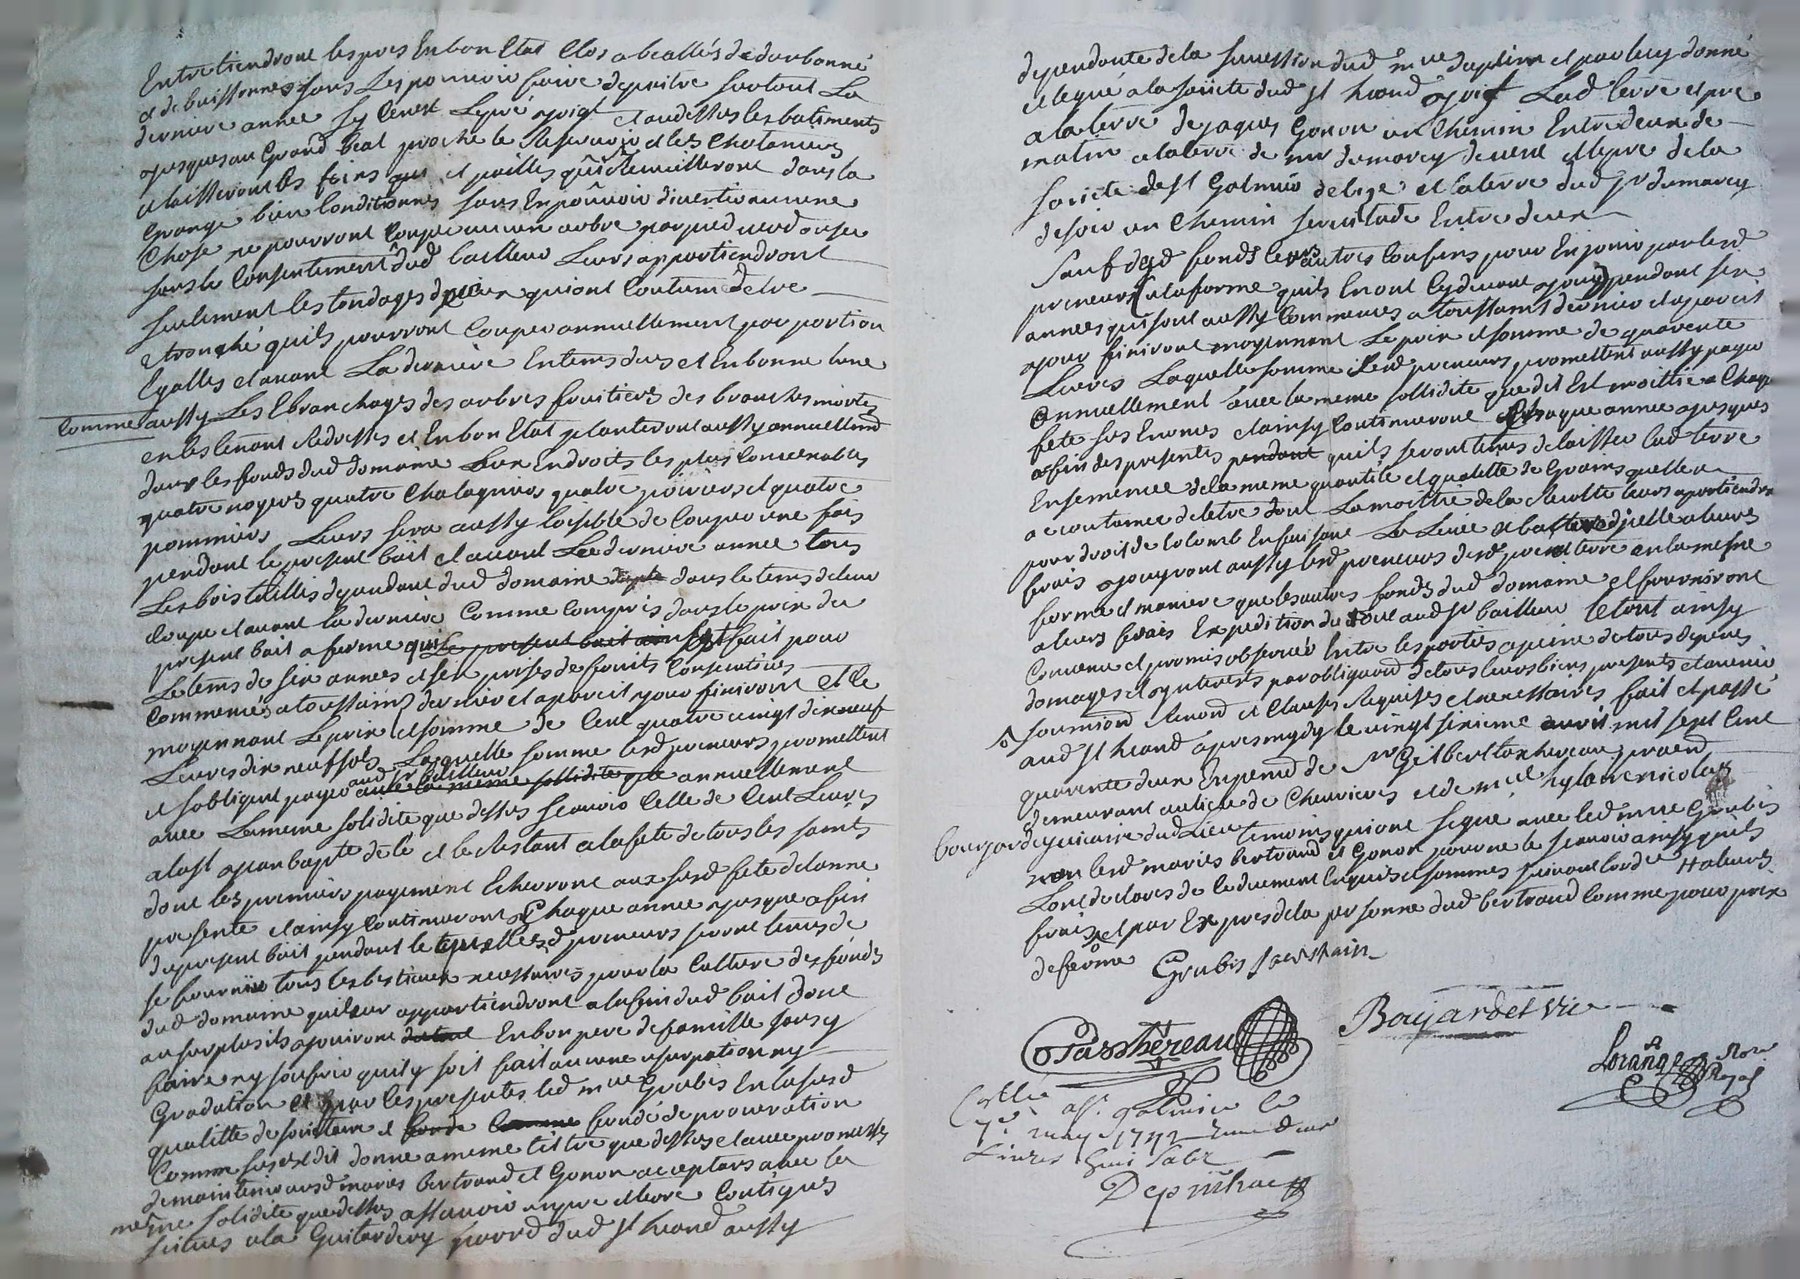 Entretiendront les pres En bon Etat Clos abeallés de
et de buissonnes sans Les pouvoir faire depaitre surtout La
derniere année sy Ce nest Le pré joigt et audessus les batiments
jusques au Grand beal proche le Reservoir et les Chataniers
et laisseront les foins qui et pailles qui si Recuilleront dans la
Grange bien Conditionnés sans En pouvoir divertir aucune
Chose ne pourront Couper aucun arbre par pied verd ou sec
sans le Consentement dud bailleur Leurs appartiendront
seulement les tondages diceux qui ont Coutume detre
Etronché quils pourront Couper annuellement par portion
Egalles et avant La derniere En tems dues et En bonne lune
Comme aussy Les Ebranchages des arbres fruitiers des branches mortes
en les tenant Redressés et En bon Etat planteront aussy annuellemt
dans les fonds dud domaine aux Endroits les plus Convenables
quatre noyers quatre Chatagniers quatre poiriers et quatre
pommiers, Leurs sera aussy loisible de Couper une fois
pendant le present bail et avant La derniere année tous
Les bois taillis dependant dud domaine dans le tems de leur
Coupe et avant la derniere Comme Compris dans le prix du
present bail a ferme qui le present bail Est fait pour
Le tems de six années et six prises de fruits Consecutives
Commencés a toussaints dernier et a pareil jour finiront et le
moyennant Le prix et somme de Cent quatre vingt dix neuf
Livres dix neuf sols Laquelle somme lesd preneurs promettent
et sobligent payer aud sr bailleur avec la meme sollidité que annuellement
avec La meme solidité que dessus scavoir Celle de Cent Livres
a la st jean bapte dété et le Restant a la fete de tous les saints
dont les premiers payement Echevront aux susd fete de lanne
presente et ainsy Continueront Chaque année jusque a fin
du present bail pendant le lesd preneurs seront tenus de
se fournir tous les bestiaux necessaires pour la Culture des fonds
dud domaine qui leur appartiendront a la fin dud bail dont
au surplus ils jouiront En bon pere de famille sans y
faire ny souffrir quil y soit fait aucune usurpation ny
Gradation Et par les presentes led mre Grubis En la susd
qualitte de et fondé de procuration
Comme susest dit donne a meme titre que dessus et avec promesses
de maintenir ausd mariés bertrand et Gonon acceptans avec la
même solidité que dessus assavoir un pre et terre Contigus
situés a la Guitardery parrd dud st heand aussy
dependante de la succession dud mre et par luy donné
et legué a la societe dud st heand joigt Lad terre et pre
a la terre de jaques Gonon un Chemin Entre deux de
matin a la terre de mr dumarey de vent et le pre de la
societe de st Galmier de bize et la terre dud sr dumarey
de soir un Chemin servitude Entre deux
Sauf desd fonds leurs autres Confins pour En jouir par lesd
preneurs a la forme quils En ont Cydevant jouy pendant six
années qui sont aussy Commencés a toussaint dernier et a pareil
jour finiront moyennant Le prix et somme de quarente
Livres Laquelle somme lesd preneurs promettent aussy payer
annuellement avec la meme sollidité que dit Est moittié a Chaque
fete sus Enoncés et ainsy Continueront Chaque année jusques
a fin des presentes pendant quils seront tenus de laisser lad terre
Ensemencée de la meme quantité et qualitté de Grains quelle a
accoutumée detre dont La moittié de la Recolte leurs apartiendra
pour droit de Colomb En faisant La Levée et batture dicelle a leurs
frais jouyront aussy lesd preneurs desd pre et terre en la mesme
forme et maniere que les autres fonds dud domaine et fourniront
a leurs frais Expedition du tout aud sr bailleur Le tout ainsy
Convenu et promis observer Entre les parties a peine de tous depens
domages et jnterets par obligaond de tous leurs biens presents et avenir
soumiond Renond et Clauses Requises et necessaires fait et passé
aud st heand apres mydy le vingt sixieme avril mil sept Cent
quarente deux En presence de Mr Gilbert pachereau praend
demeurant au lieu de Chevrieres et de mre hylaire nicolas
boujardet vicaire dud Lieu temoins qui ont signé avec led mre Grubis
non lesd mariés bertrand et Gonon pour ne le scavoir ainsy quils
Lont declarés de ce duement Enquis et sommés suivant lord
frais et par Exprès de la personne dud bertrand Comme pour prix
de ferme
Grubis
Paschereau
Boujardet Vic
Lorange Nore Royal
Collé
a st galmier le
7e may 1742
Livres huit sols
Depinhac